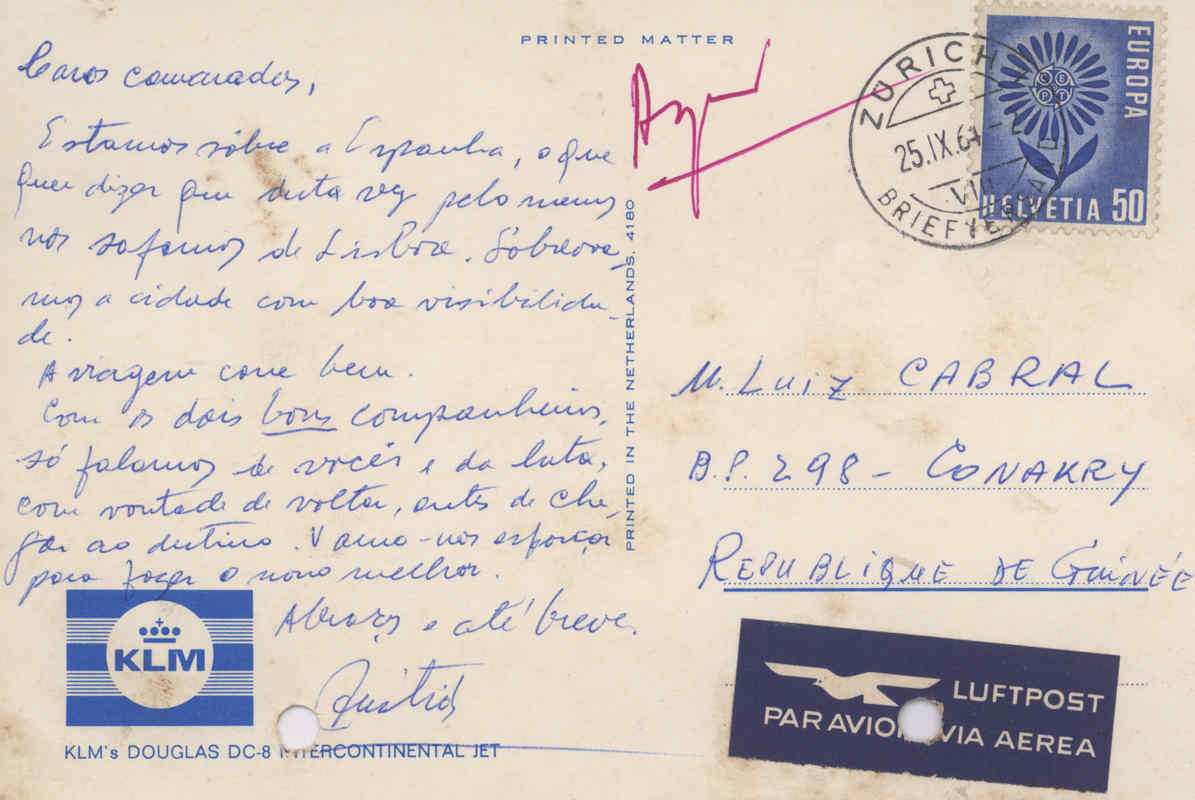 PRINTED MATTER
Caros camaradas,
Estamos sôbre a Espanha, o que
quer dizer que desta vez pelo menos
nos safamos de Lisboa. Sobrevoa-
mos a cidade com boa visibilida-
de.
A viagem corre bem.
Com os dois bons companheiros,
só falamos de vocês e da luta,
com vontade de voltar, antes de che-
gar ao destino. Vamo-nos esforçar
para fazer o nosso melhor.
Abraços e até breve.
KLM
KLM's DOUGLAS DC-8 INTERCONTINENTAL JET
PRINTED IN THE NETHERLANDS. 4180
ZÜRICH
25.IX.64
VIII
BRIEFVERSAND
EUROPA
CEPT
HELVETIA 50
M. LUIZ CABRAL
B.P. 298 - CONAKRY
REPUBLIQUE DE GUINÉE
LUFTPOST
PAR AVION VIA AEREA